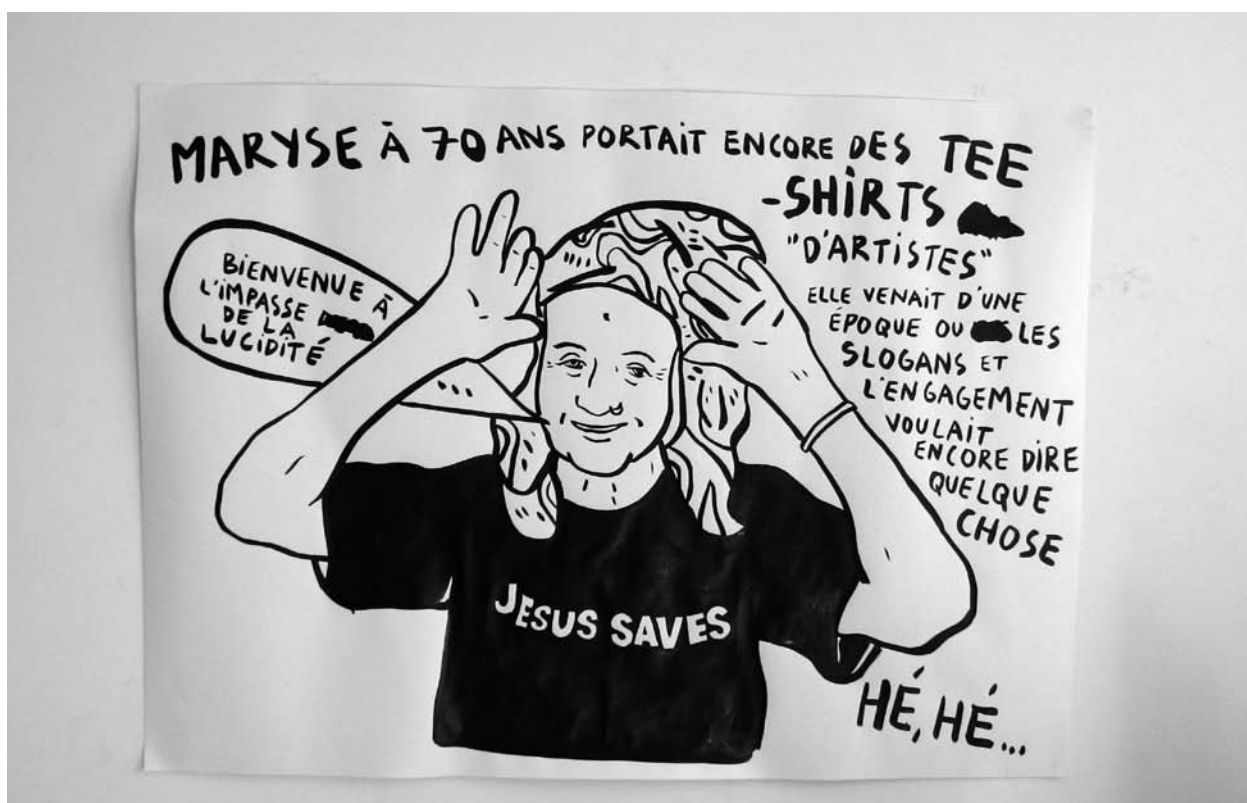 MARYSE À 70 ANS PORTAIT ENCORE DES TEE
-SHIRTS
"D'ARTISTES"
ELLE VENAIT D'UNE
ÉPOQUE OU LES
SLOGANS ET
L'ENGAGEMENT
VOULAIT
ENCORE DIRE
QUELQUE
CHOSE
BIENVENUE À
L'IMPASSE
DE LA
LUCIDITÉ
JESUS SAVES
HÉ, HÉ...